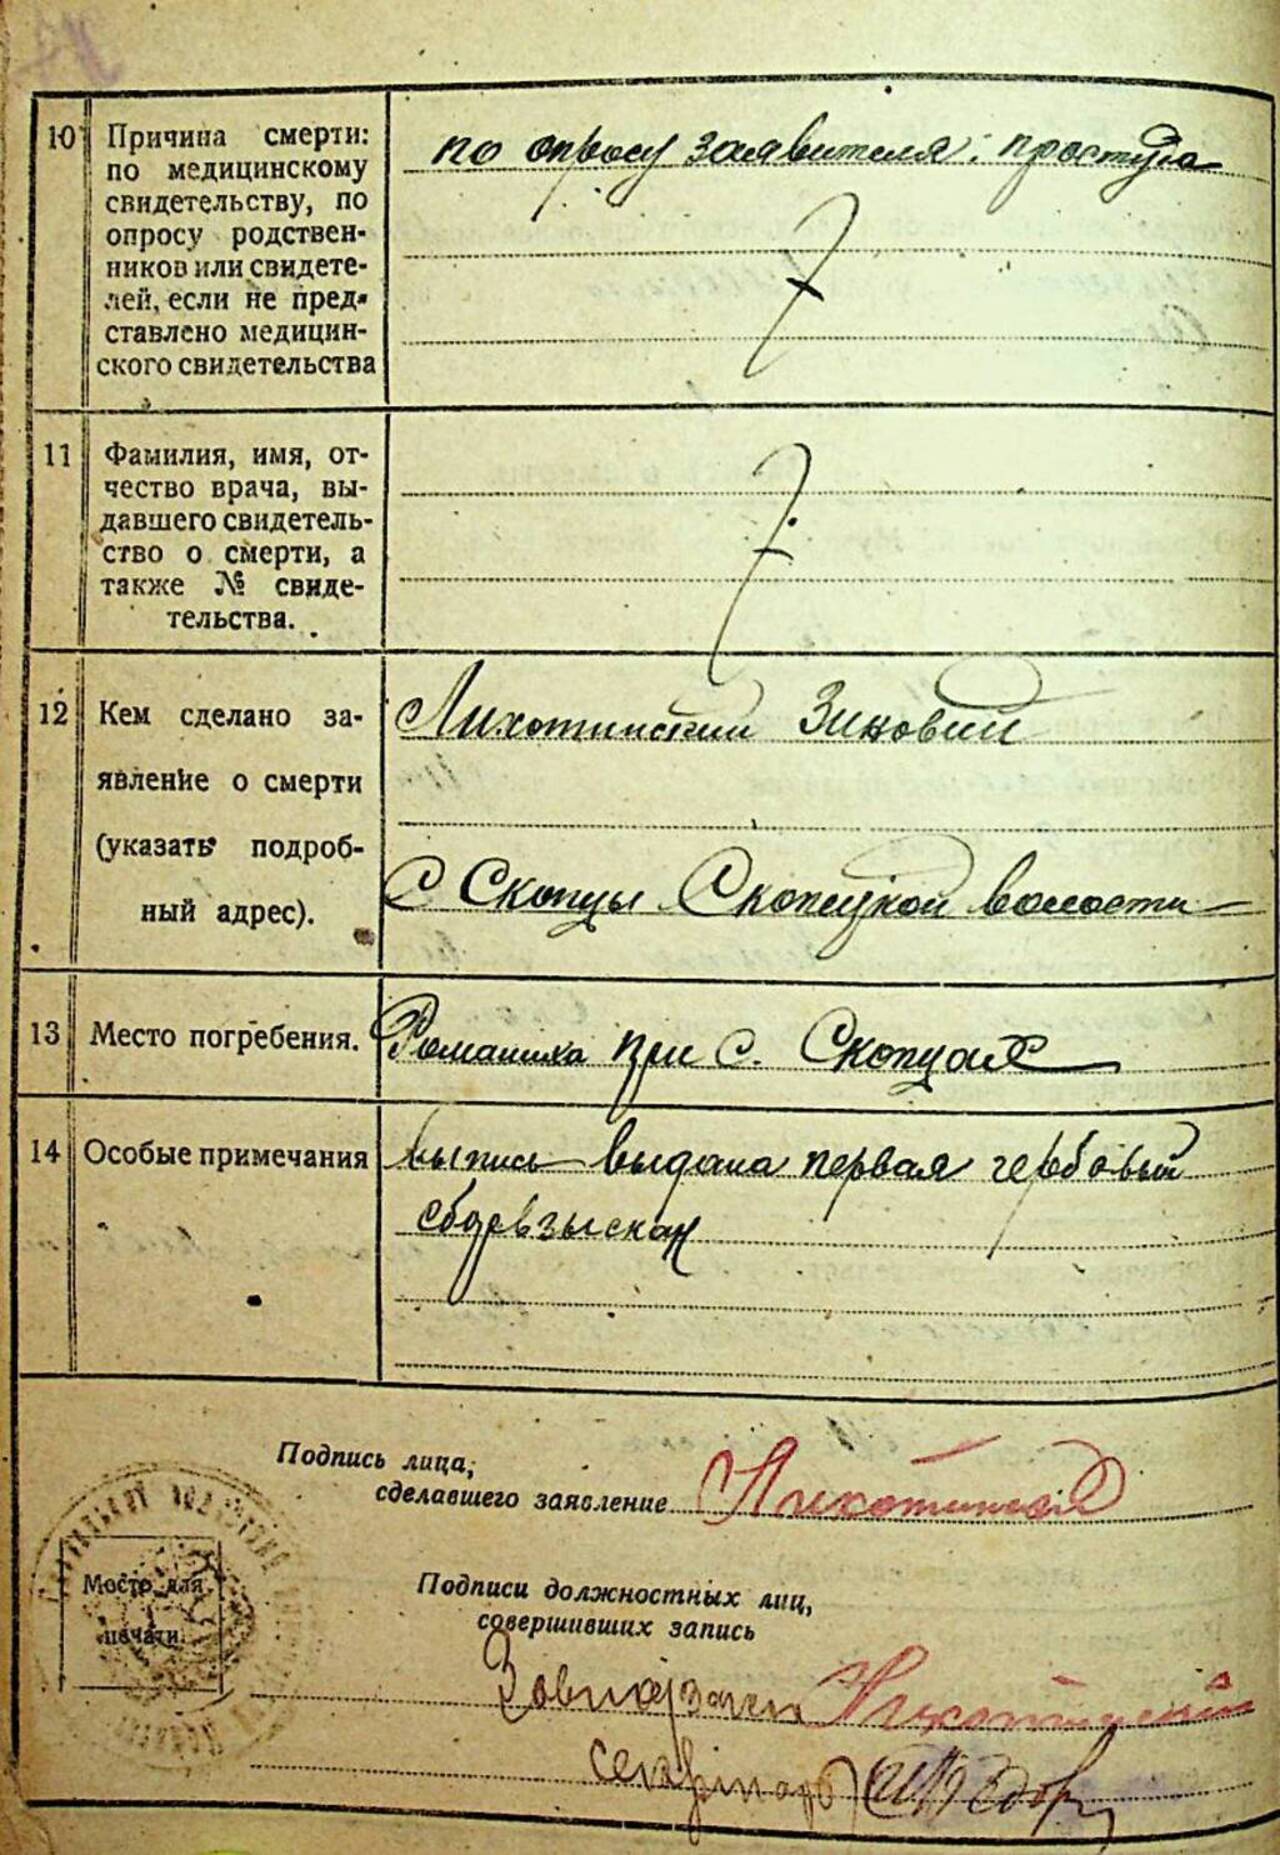 10 Причина смерти: по опросу заявителя: простуда
по медицинскому
свидетельству, по
опросу родствен-
ников или свидете-
лей, если не пред-
ставлено медицин-
ского свидетельства
11 Фамилия, имя, от-
чество врача, вы-
давшего свидетель-
ство о смерти, а
также № свиде-
тельства.
12 Кем сделано за- Лихотинский Зиновий
явление о смерти
(указать подроб-
ный адрес). С Скопцы Скопецкой волости
13 Место погребения. Романиха при с. Скопцах
14 Особые примечания выпись выдана первая гербовый
сбор взыскан
Подпись лица,
сделавшего заявление Лихотинский
Место для
печати.
Подписи должностных лиц,
совершивших запись
Лихотинский
секретарь